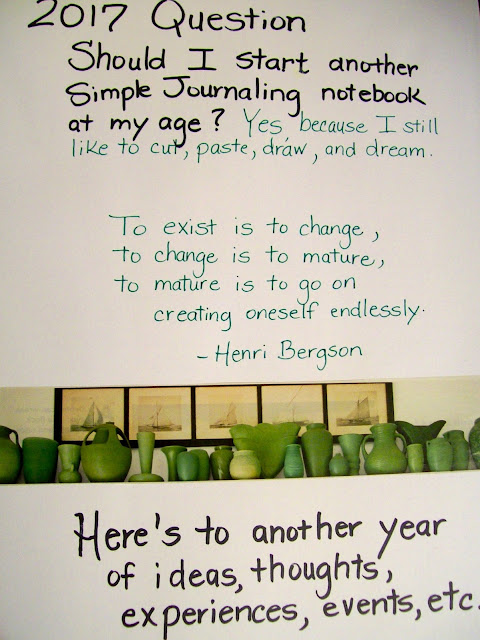 2017 Question
Should I start another
Simple Journaling notebook
at my age? Yes because I still
like to cut, paste, draw, and dream.
To exist is to change,
to change is to mature,
to mature is to go on
creating oneself endlessly.
- Henri Bergson
Here's to another year
of ideas, thoughts,
experiences, events, etc.